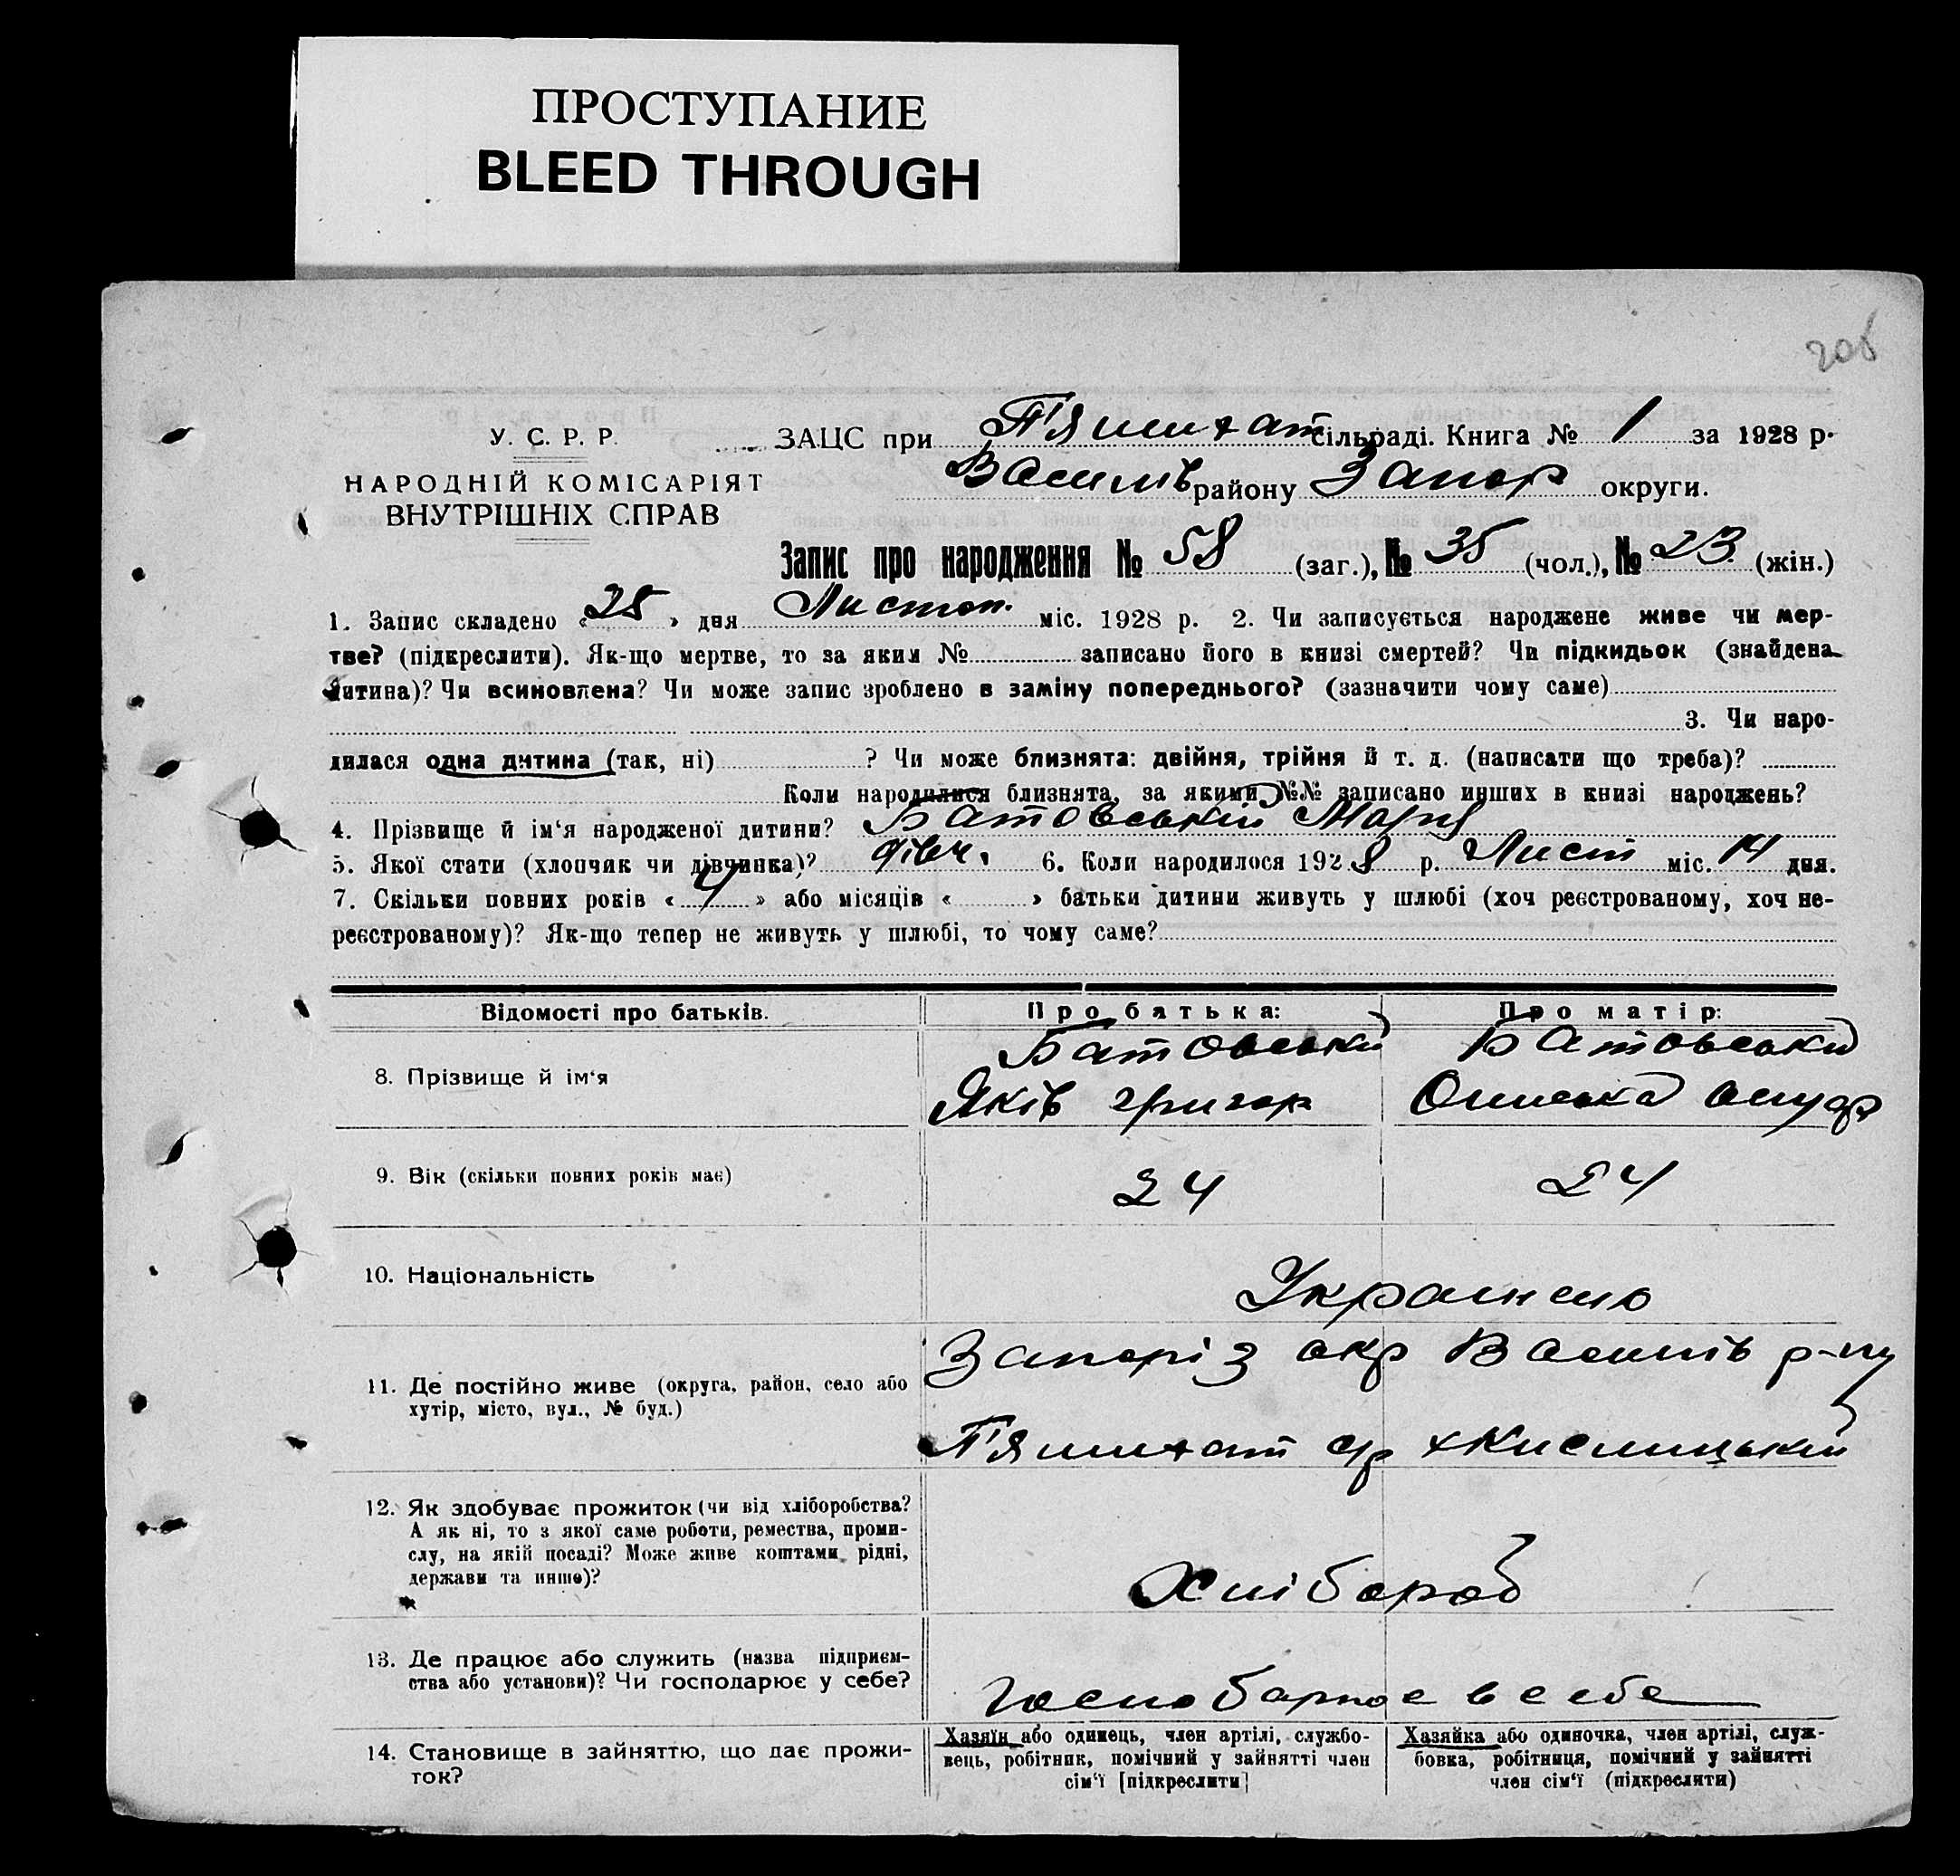 ПРОСТУПАНИЕ
BLEED THROUGH
206
У. С. Р. Р.
НАРОДНІЙ КОМІСАРІЯТ
ВНУТРІШНІХ СПРАВ
ЗАЦС при П'ятихат сільраді. Книга № 1 за 1928 р.
Василів району Запор округи.
Запис про народження № 58 (заг.), № 35 (чол.), № 23 (жін.)
1. Запис складено « 25 » дня Листоп. міс. 1928 р. 2. Чи записується народжене живе чи мер-
тве? (підкреслити). Як-що мертве, то за яким № записано його в книзі смертей? Чи підкидьок (знайдена
дитина)? Чи всиновлена? Чи може запис зроблено в заміну попереднього? (зазначити чому саме)
3. Чи наро-
дилася одна дитина (так, ні) ? Чи може близнята: двійня, трійня й т. д. (написати що треба)?
Коли народилися близнята, за якими №№ записано инших в книзі народжень?
4. Прізвище й ім'я народженої дитини? Батовський Марія
5. Якої стати (хлопчик чи дівчинка)? дівч. 6. Коли народилося 1928 р. Лист міс. 14 дня.
7. Скільки повних років « 4 » або місяців « » батьки дитини живуть у шлюбі (хоч реєстрованому, хоч не-
реєстрованому)? Як-що тепер не живуть у шлюбі, то чому саме?
Відомості про батьків. Про батька: Про матір:
8. Прізвище й ім'я
Батовський Батовський
Яків Григор
9. Вік (скільки повних років має) 24 24
10. Національність
Україн
11. Де постійно живе (округа, район, село або
хутір, місто, вул., № буд.)
Запоріз окр Василів р-ну
П'ятихат с/р х Кислицький
12. Як здобуває прожиток (чи від хліборобства?
А як ні, то з якої саме роботи, ремества, проми-
слу, на якій посаді? Може живе коштами рідні,
держави та инше)?
Хлібороб
13. Де працює або служить (назва підприєм-
ства або установи)? Чи господарює у себе?
в себе
14. Становище в зайняттю, що дає прожи-
ток?
Хазяїн або одинець, член артілі, службо-
вець, робітник, помічний у зайнятті член
сім'ї [підкреслити]
Хазяйка або одиночка, член артілі, служ-
бовка, робітниця, помічний у зайнятті
член сім'ї (підкреслити)